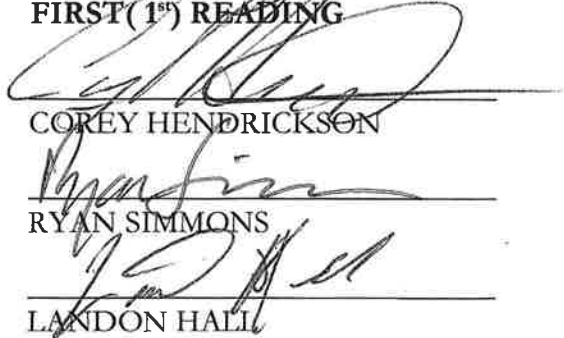 FIRST( 1st) READING
COREY HENDRICKSON
Ryan Simm
RYAN SIMMONS
LANDON HALL